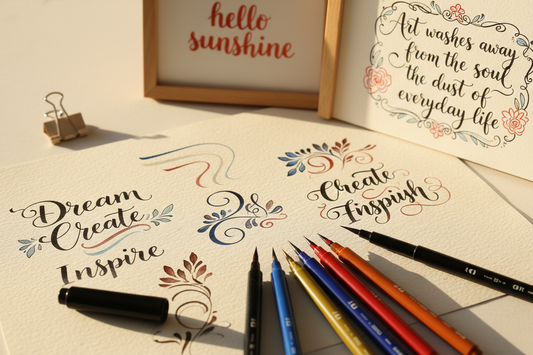 hello
sunshine
Art washes away
from the soul
the dust of
everyday life
Dream
Create
Inspire
&
Create
Fnspiush